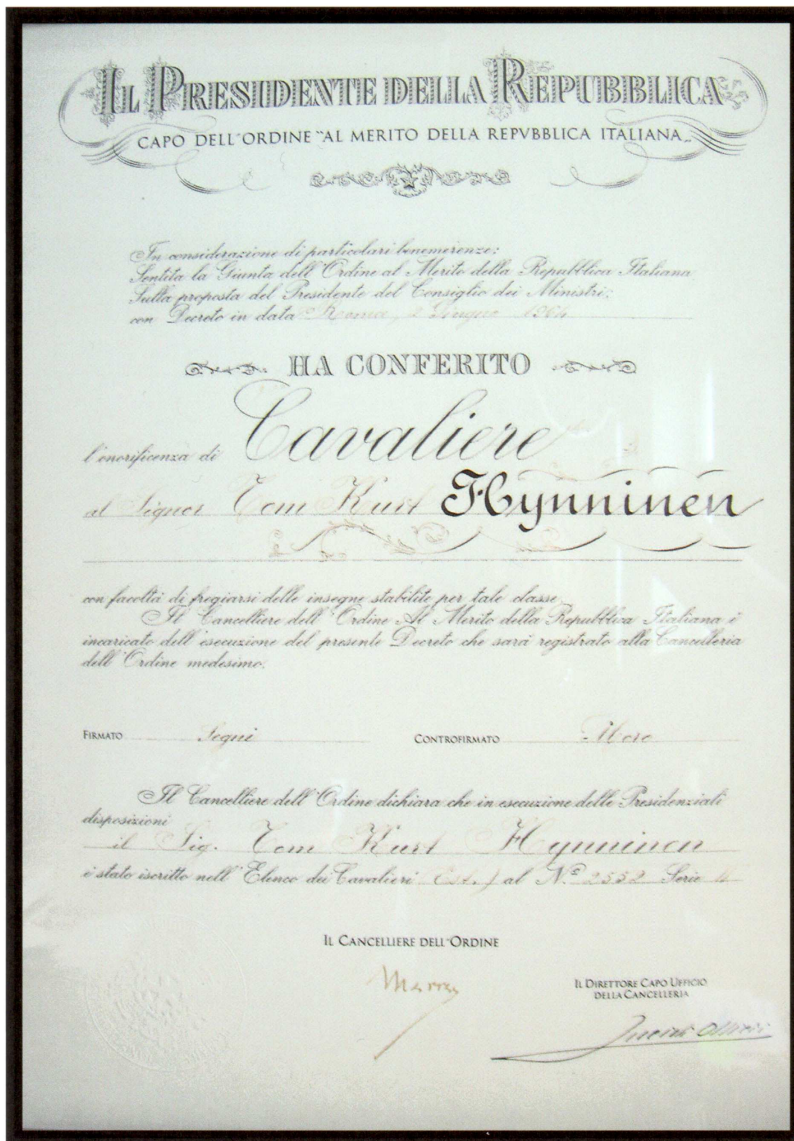 IL PRESIDENTE DELLA REPUBBLICA
CAPO DELL'ORDINE "AL MERITO DELLA REPVBBLICA ITALIANA"
In considerazione di particolari benemerenze;
Sentita la Giunta dell'Ordine al Merito della Repubblica Italiana
Sulla proposta del Presidente del Consiglio dei Ministri;
con Decreto in data Roma, 2 Giugno 1964
HA CONFERITO
l'onorificenza di Cavaliere
al Signor Tom Kurt Hynninen
con facoltà di fregiarsi delle insegne stabilite per tale classe.
Il Cancelliere dell'Ordine Al Merito della Repubblica Italiana è
incaricato dell'esecuzione del presente Decreto che sarà registrato alla Cancelleria
dell'Ordine medesimo.
FIRMATO Segni CONTROFIRMATO Moro
Il Cancelliere dell'Ordine dichiara che in esecuzione delle Presidenziali
disposizioni
il Sig. Tom Kurt Hynninen
è stato iscritto nell'Elenco dei Cavalieri (Est.) al N.º 2552 Serie
IL CANCELLIERE DELL'ORDINE
IL DIRETTORE CAPO UFFICIO
DELLA CANCELLERIA